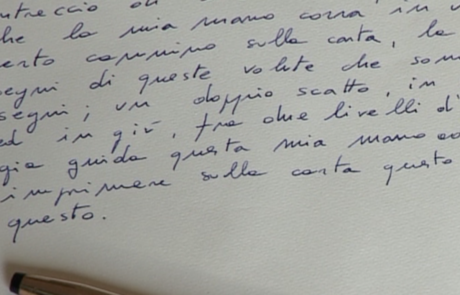 ntreccio di
che la mia mano corra in
certo cammino sulla carta, la
segni di queste volute che som
segni; un doppio scatto, in
ed in giù, tra due livelli d'
gia guida questa mia mano
imprimere sulla carta questo
questo.